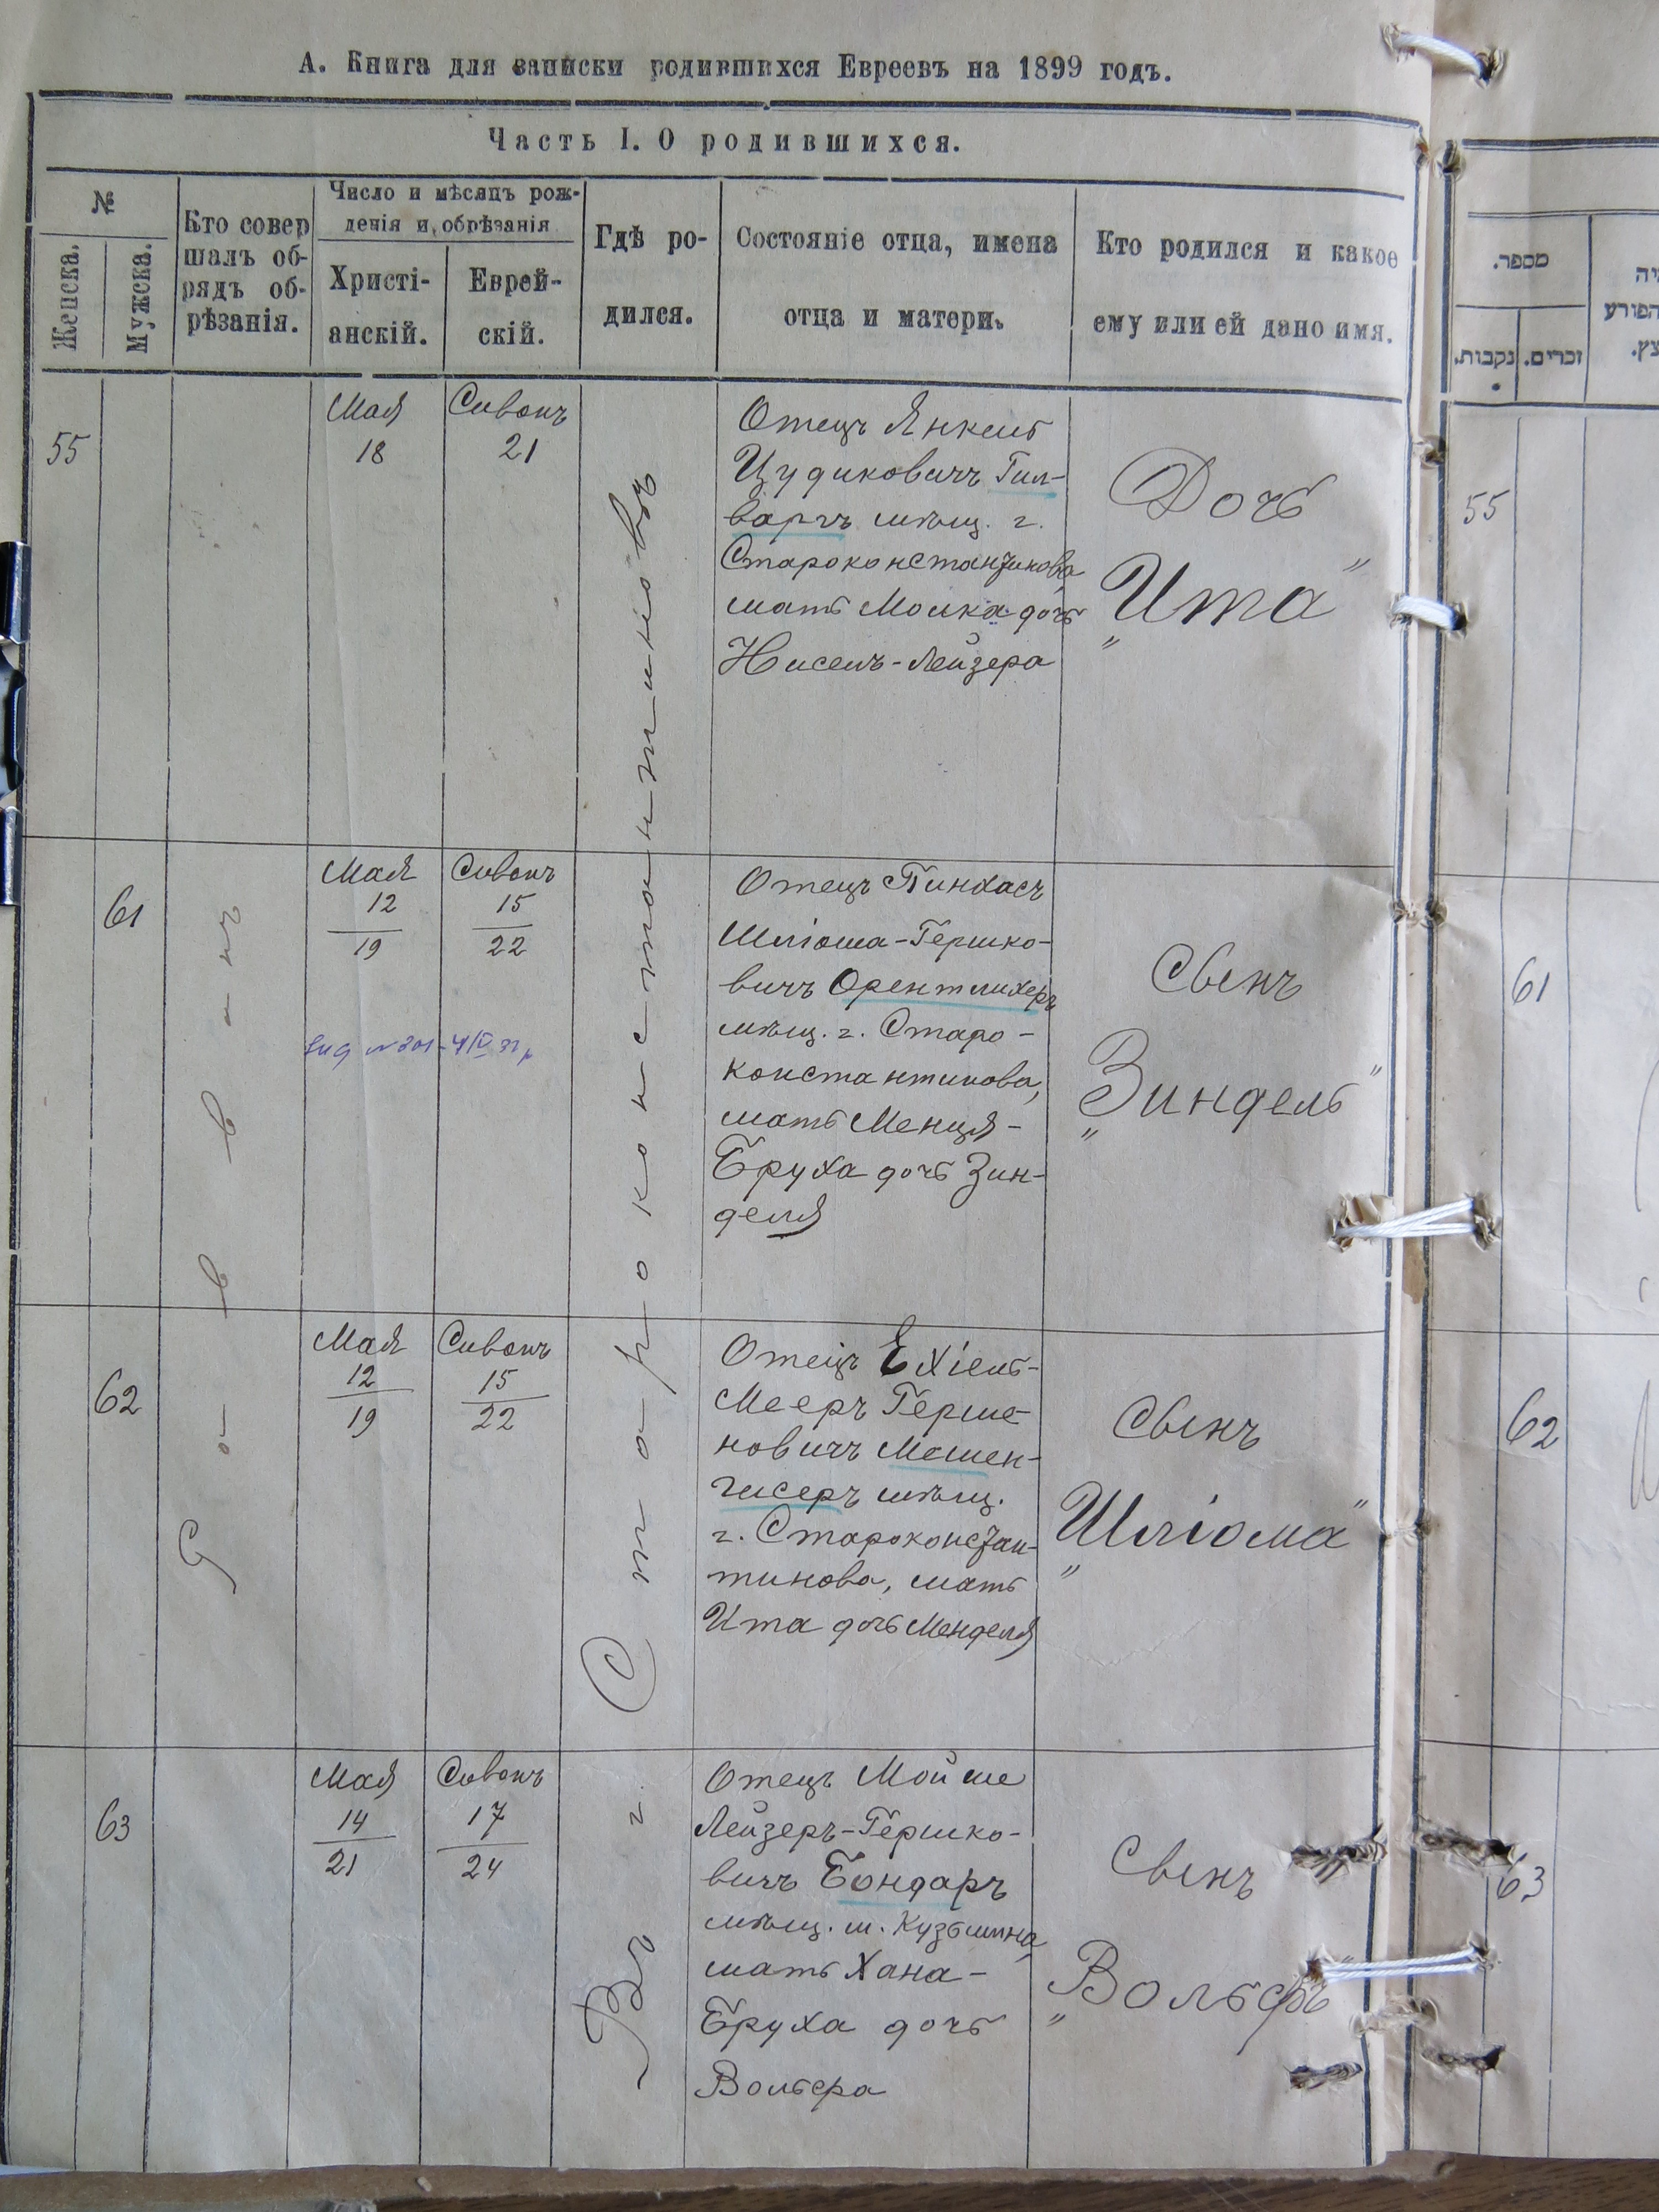 А. Книга для записки родившихся Евреевъ на 1899 годъ.
Часть I. О родившихся.
№
Женска.
Мужска.
Кто совер
шалъ об-
рядъ об-
рѣзанія.
Число и мѣсяцъ рож-
денія и обрѣзанія
Христі-
анскій.
Еврей-
скій.
Гдѣ ро-
дился.
Состояніе отца, имена
отца и матери.
Кто родился и какое
ему или ей дано имя.
מספר.
נקבות.
זכרים.
הפורע
55
Мая
18
Сиванъ
21
Отецъ Янкель
Цудиковичъ Гил-
варгъ мѣщ. г.
Староконстантинова
мать Молка дочь
Нисель-Лейзера
Дочь
"Ита"
55
61
Мая
12
19
Сиванъ
15
22
Отецъ Пинхасъ
Шліома-Гершко-
вичъ Орентлихеръ
мѣщ. г. Старо-
константинова,
мать Менця-
Бруха дочь Зин-
деля
Сынъ
"Зиндель"
61
62
Мая
12
19
Сиванъ
15
22
Отецъ Ехіель-
Мееръ Герше-
новичъ Мешен-
гисеръ мѣщ.
г. Староконстан-
тинова, мать
Ита дочь Менделя
Сынъ
"Шліома"
62
63
Мая
14
21
Сиванъ
17
24
Отецъ Мойше
Лейзеръ-Гершко-
вичъ Бондаръ
мѣщ. м. Кузьмина
мать Хана-
Бруха дочь
Вольфа
Сынъ
"Вольфъ"
63
Въ г. Староконстантиновѣ